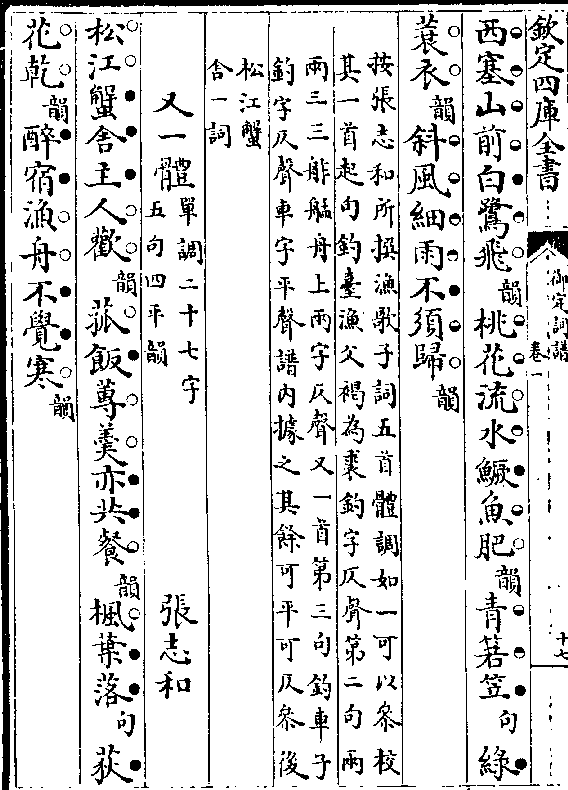 欽定四庫全書
御定詞譜
卷一
十七
西塞山前白鷺飛韻桃花流水鱖魚肥韻青箬笠句綠
蓑衣韻斜風細雨不須歸韻
按張志和所撰漁歌子詞五首體調如一可以叅校
其一首起句釣臺漁父褐為裘釣字仄聲第二句兩
兩三三舴艋舟上兩字仄聲又一首第三句釣車子
釣字仄聲車字平聲譜內據之其餘可平可仄叅後
松江蟹
舍一詞
又一體單調二十七字
五句四平韻
張志和
松江蟹舍主人歡韻菰飯蓴羹亦共餐韻楓葉落句荻
花乾韻醉宿漁舟不覺寒韻